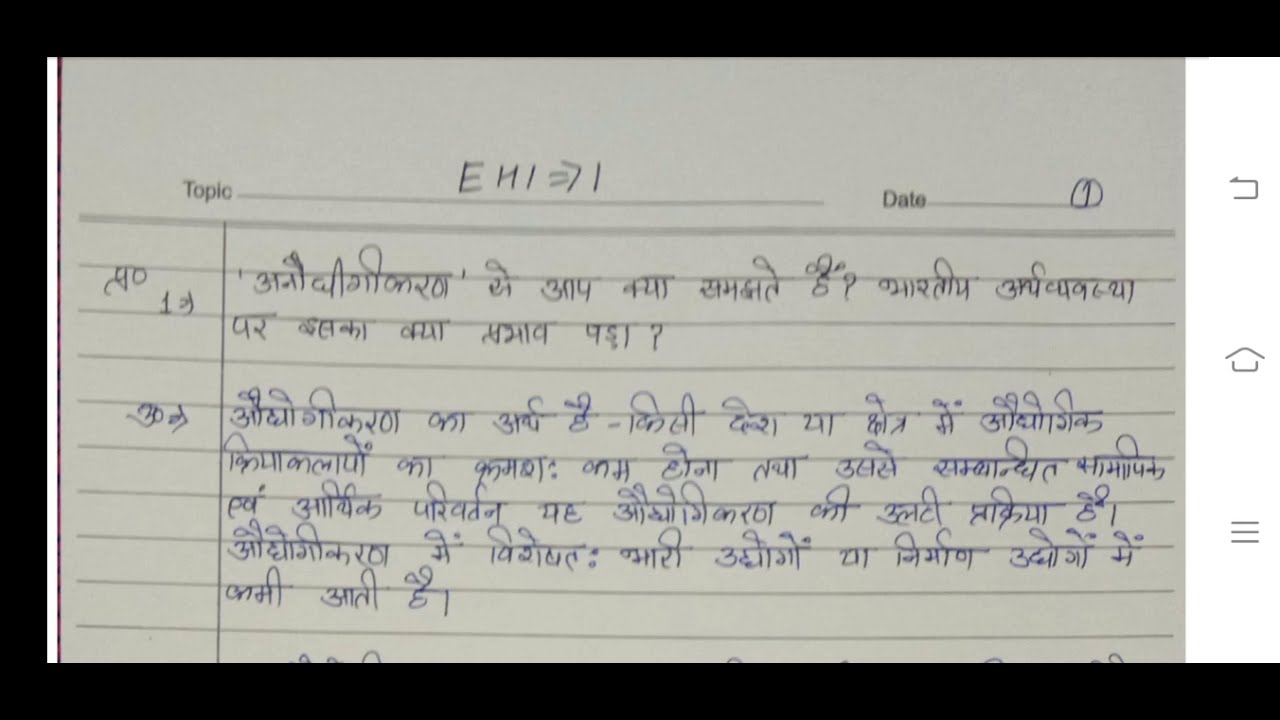 Topic EHI⇒1 Date ①
प्र०
1⇒ 'अनौद्यीगीकरण' से आप क्या समझते हैं? भारतीय अर्थव्यवस्था
पर इसका क्या प्रभाव पड़ा?
उ०⇒ औद्योगीकरण का अर्थ है - किसी देश या क्षेत्र में औद्योगिक
क्रियाकलापों का क्रमश: कम होना तथा उससे सम्बान्धित सामाजिक
एवं आर्थिक परिवर्तन यह औद्योगिकरण की उलटी प्रक्रिया है।
औद्योगीकरण में विशेषत: भारी उद्योगों या निर्माण उद्योगों में
कमी आती है।